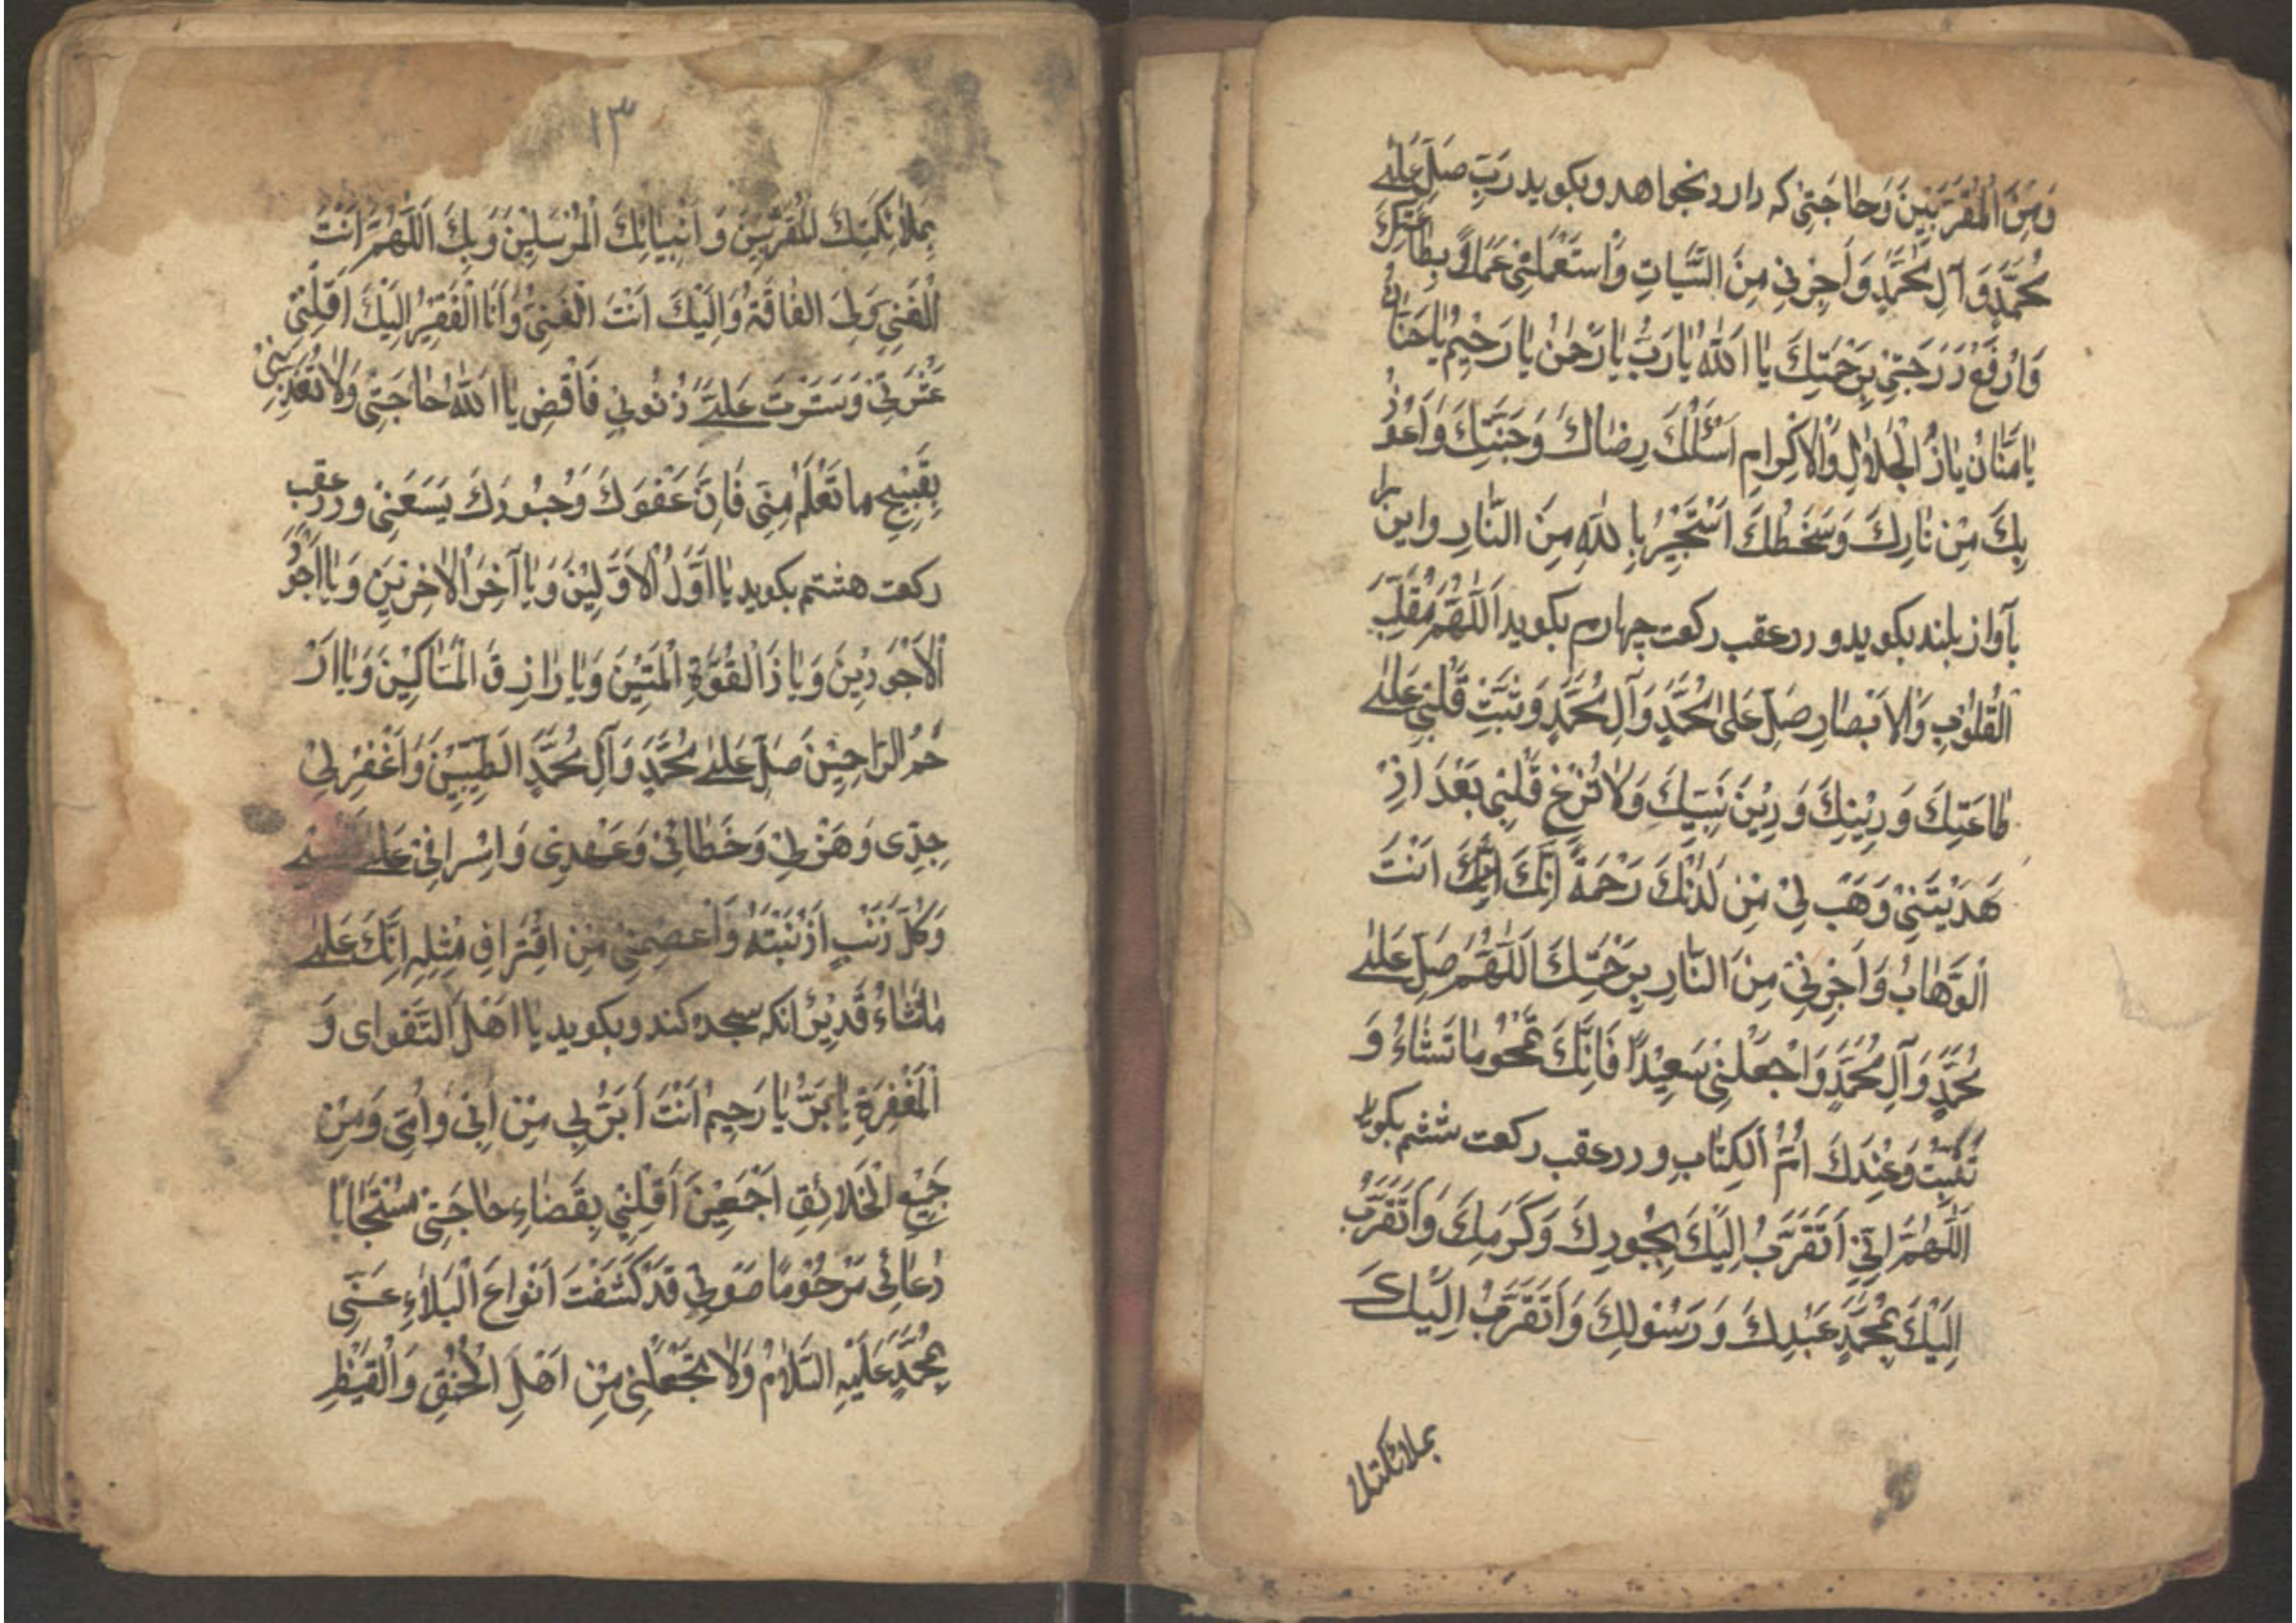 وَمِنَ الْمُقَرَّبِيْنَ وَحَاجَتِیْ كه دارد بخواهد و بكويد رَبِّ صَلِّ عَلیٰ
مُحَمَّدٍ وَآلِ مُحَمَّدٍ وَاَجِرْنِیْ مِنَ السَّيِّاٰتِ وَاسْتَعْمِلْنِیْ عَمَلاً بِطَاعَتِكَ
وَارْفَعْ دَرَجَتِیْ بِرَحْمَتِكَ يٰا اَللّٰهُ يٰا رَبُّ يٰا رَحْمٰنُ يٰا رَحِيْمُ يٰا حَنَّانُ
يٰا مَنَّانُ يٰا ذَ الْجَلاٰلِ وَالْاِكْرٰامِ اَسْئَلُكَ رِضٰاكَ وَجَنَّتِكَ وَاَعُوْذُ
بِكَ مِنْ نٰارِكَ وَسَخَطِكَ اَسْتَجِيْرُ بِاللّٰهِ مِنَ النَّارِ واين را
بآواز بلند بكويد ودرعقب ركعت چهارم بكويد اَللّٰهُمَّ مُقَلِّبَ
الْقُلُوْبِ وَالْاَبْصٰارِ صَلِّ عَلیٰ مُحَمَّدٍ وَآلِ مُحَمَّدٍ وَثَبِّتْ قَلْبِیْ عَلیٰ
طٰاعَتِكَ وَدِيْنِكَ وَدِيْنَ نَبِيِّكَ وَلاٰ تُزِغْ قَلْبِیْ بَعْدَ اِذْ
هَدَيْتَنِیْ وَهَبْ لِیْ مِنْ لَدُنْكَ رَحْمَةً اِنَّكَ اِنَّكَ اَنْتَ
الْوَهّٰابُ وَاَجِرْنِیْ مِنَ النّٰارِ بِرَحْمَتِكَ اَللّٰهُمَّ صَلِّ عَلیٰ
مُحَمَّدٍ وَآلِ مُحَمَّدٍ وَاجْعَلْنِیْ سَعِيْدًا فَاِنَّكَ تَمْحُوْ مٰا تَشٰاءُ وَ
تُثْبِتُ وَعِنْدَكَ اُمُّ الْكِتٰابِ ودرعقب ركعت ششم بكويد
اَللّٰهُمَّ اِنِّیْ اَتَقَرَّبُ اِلَيْكَ بِجُوْدِكَ وَكَرَمِكَ وَاَتَقَرَّبُ
اِلَيْكَ بِمُحَمَّدٍ عَبْدِكَ وَرَسُوْلِكَ وَاَتَقَرَّبُ اِلَيْكَ
بملائكتك
١٣
بِمَلاٰئِكَتِكَ الْمُقَرَّبِيْنَ وَاَنْبِيٰائِكَ الْمُرْسَلِيْنَ وَبِكَ اَللّٰهُمَّ اَنْتَ
الْغَنِیْ وَلِیَ الْفٰاقَةُ وَاِلَيْكَ اَنْتَ الْغَنِیُّ وَاَنَا الْفَقِيْرُ اِلَيْكَ اَقَلْتَنِیْ
عَثْرَتِیْ وَسَتَرْتَ عَلَیَّ ذُنُوْبِیْ فَاقْضِ يٰا اَللّٰهُ حٰاجَتِیْ وَلاٰ تُعَذِّبْنِیْ
بِقَبِيْحِ ما تَعْلَمُ مِنِّیْ فَاِنَّ عَفْوَكَ وَجُوْدَكَ يَسَعَنِیْ ودرعقب
ركعت هشتم بكويد يٰا اَوَّلَ الْاَوَّلِيْنَ وَيٰا آخِرَ الْاٰخِرِيْنَ وَيٰا اَجْوَدَ
الْاَجْوَدِيْنَ وَيٰا ذَالْقُوَّةِ الْمَتِيْنَ وَيٰا رٰازِقَ الْمَسٰاكِيْنَ وَيٰا اَرْ
حَمَ الرّٰاحِمِيْنَ صَلِّ عَلیٰ مُحَمَّدٍ وَآلِ مُحَمَّدٍ الطَّيِّبِيْنَ وَاغْفِرْ لِیْ
جِدِّی وَهَزْلِیْ وَخَطٰائِیْ وَعَمْدِیْ وَاِسْرٰافِیْ عَلیٰ نَفْسِیْ
وَكُلَّ ذَنْبٍ اَذْنَبْتُهُ وَاعْصِمْنِیْ مِنْ اقْتِرٰافِ مِثْلِهِ اِنَّكَ عَلیٰ
مٰا تَشٰاءُ قَدِيْرٌ انكه سجده كند وبكويد يٰا اَهْلَ التَّقْوای وَ
الْمَغْفِرَةِ يٰا بَرُّ يٰا رَحِيْمُ اَنْتَ اَبَرُّ بِی مِنْ اَبِیْ وَاُمِّی وَمِنْ
جَمِيْعِ الْخَلاٰئِقِ اَجْمَعِيْنَ اَقْلِبْنِیْ بِقَضٰاءِ حٰاجَتِیْ مُسْتَجٰابًا
دُعٰائِیْ مَرْحُوْمًا صَوْتِیْ قَدْ كَشَفْتَ اَنْوٰاعَ الْبَلاٰءِ عَنِّی
بِمُحَمَّدٍ عَلَيْهِ السَّلاٰمُ وَلاٰ تَجْعَلْنِیْ مِنْ اَهْلِ الْحُنْقِ وَالْقَيْظِ